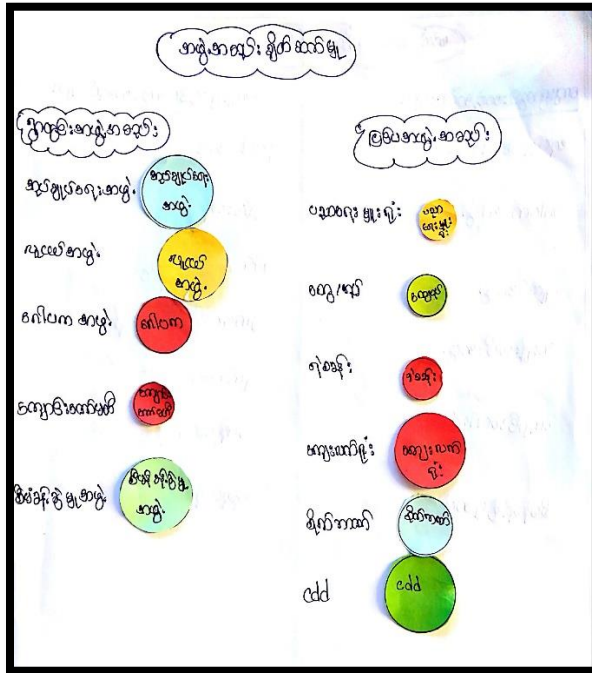 အဖွဲ့အစည်းချိတ်ဆက်မှု
ရွာတွင်းအဖွဲ့အစည်း
အုပ်ချုပ်ရေးအဖွဲ့
အုပ်ချုပ်ရေး
အဖွဲ့
လူငယ်အဖွဲ့
လူငယ်
အဖွဲ့
ဂေါပကအဖွဲ့
ဂေါပက
ကျောင်းကော်မတီ
ကျောင်း
ကော်မတီ
စီမံခန့်ခွဲမှုအဖွဲ့
စီမံခန့်ခွဲမှု
အဖွဲ့
ပြင်ပအဖွဲ့အစည်း
ပညာရေးမှူးရုံး
ပညာ
ရေးမှူး
ရုံး
ထွေ/အုပ်
ထွေအုပ်
ရဲစခန်း
ရဲစခန်း
ကျေးလက်ရုံး
ကျေးလက်
ရုံး
cdd
cdd